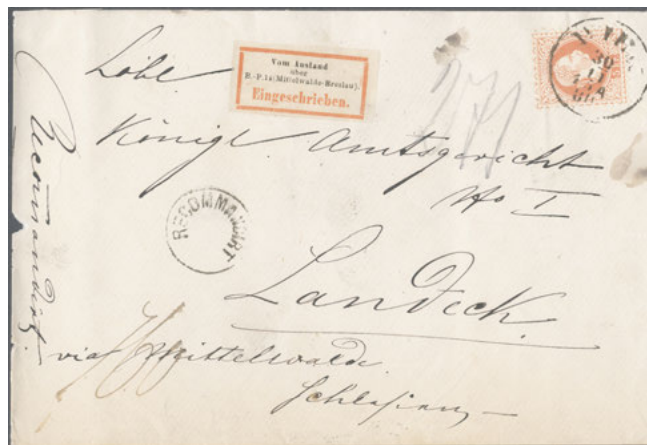 Löbl.
Vom Ausland
über
B.-P. 14 (Mittelwalde-Breslau).
Eingeschrieben.
Königl. Amtsgericht
No I
RECOMMANDIRT
Landeck.
via Mittelwalde
Schlesien
Recomandirt.